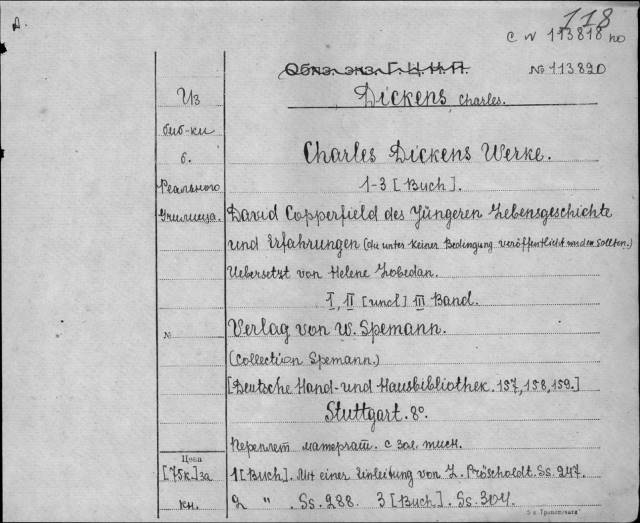 118
с № 113818 по
Обяз. экз. Г. Ц. И. П.
№ 113820
Из
Dickens Charles.
биб-ки
б.
Charles Dickens Werke.
Реального
1-3 [Buch].
Училища.
David Copperfield des Jüngeren Lebensgeschichte
und Erfahrungen (die unter keiner Bedingung veröffentlicht werden sollten.)
Uebersetzt von Helene Lobedan.
I, II [und] III Band.
№
Verlag von W. Spemann.
(Collection Spemann.)
[Deutsche Hand- und Hausbibliothek. 157, 158, 159.]
Stuttgart. 8°.
Переплет матерчат. с зол. тисн.
Цена
[75 к.] за
1 [Buch]. Mit einer Einleitung von L. Pröscholdt. Ss. 247.
кн.
2 " . Ss. 288. 3 [Buch]. Ss. 304.